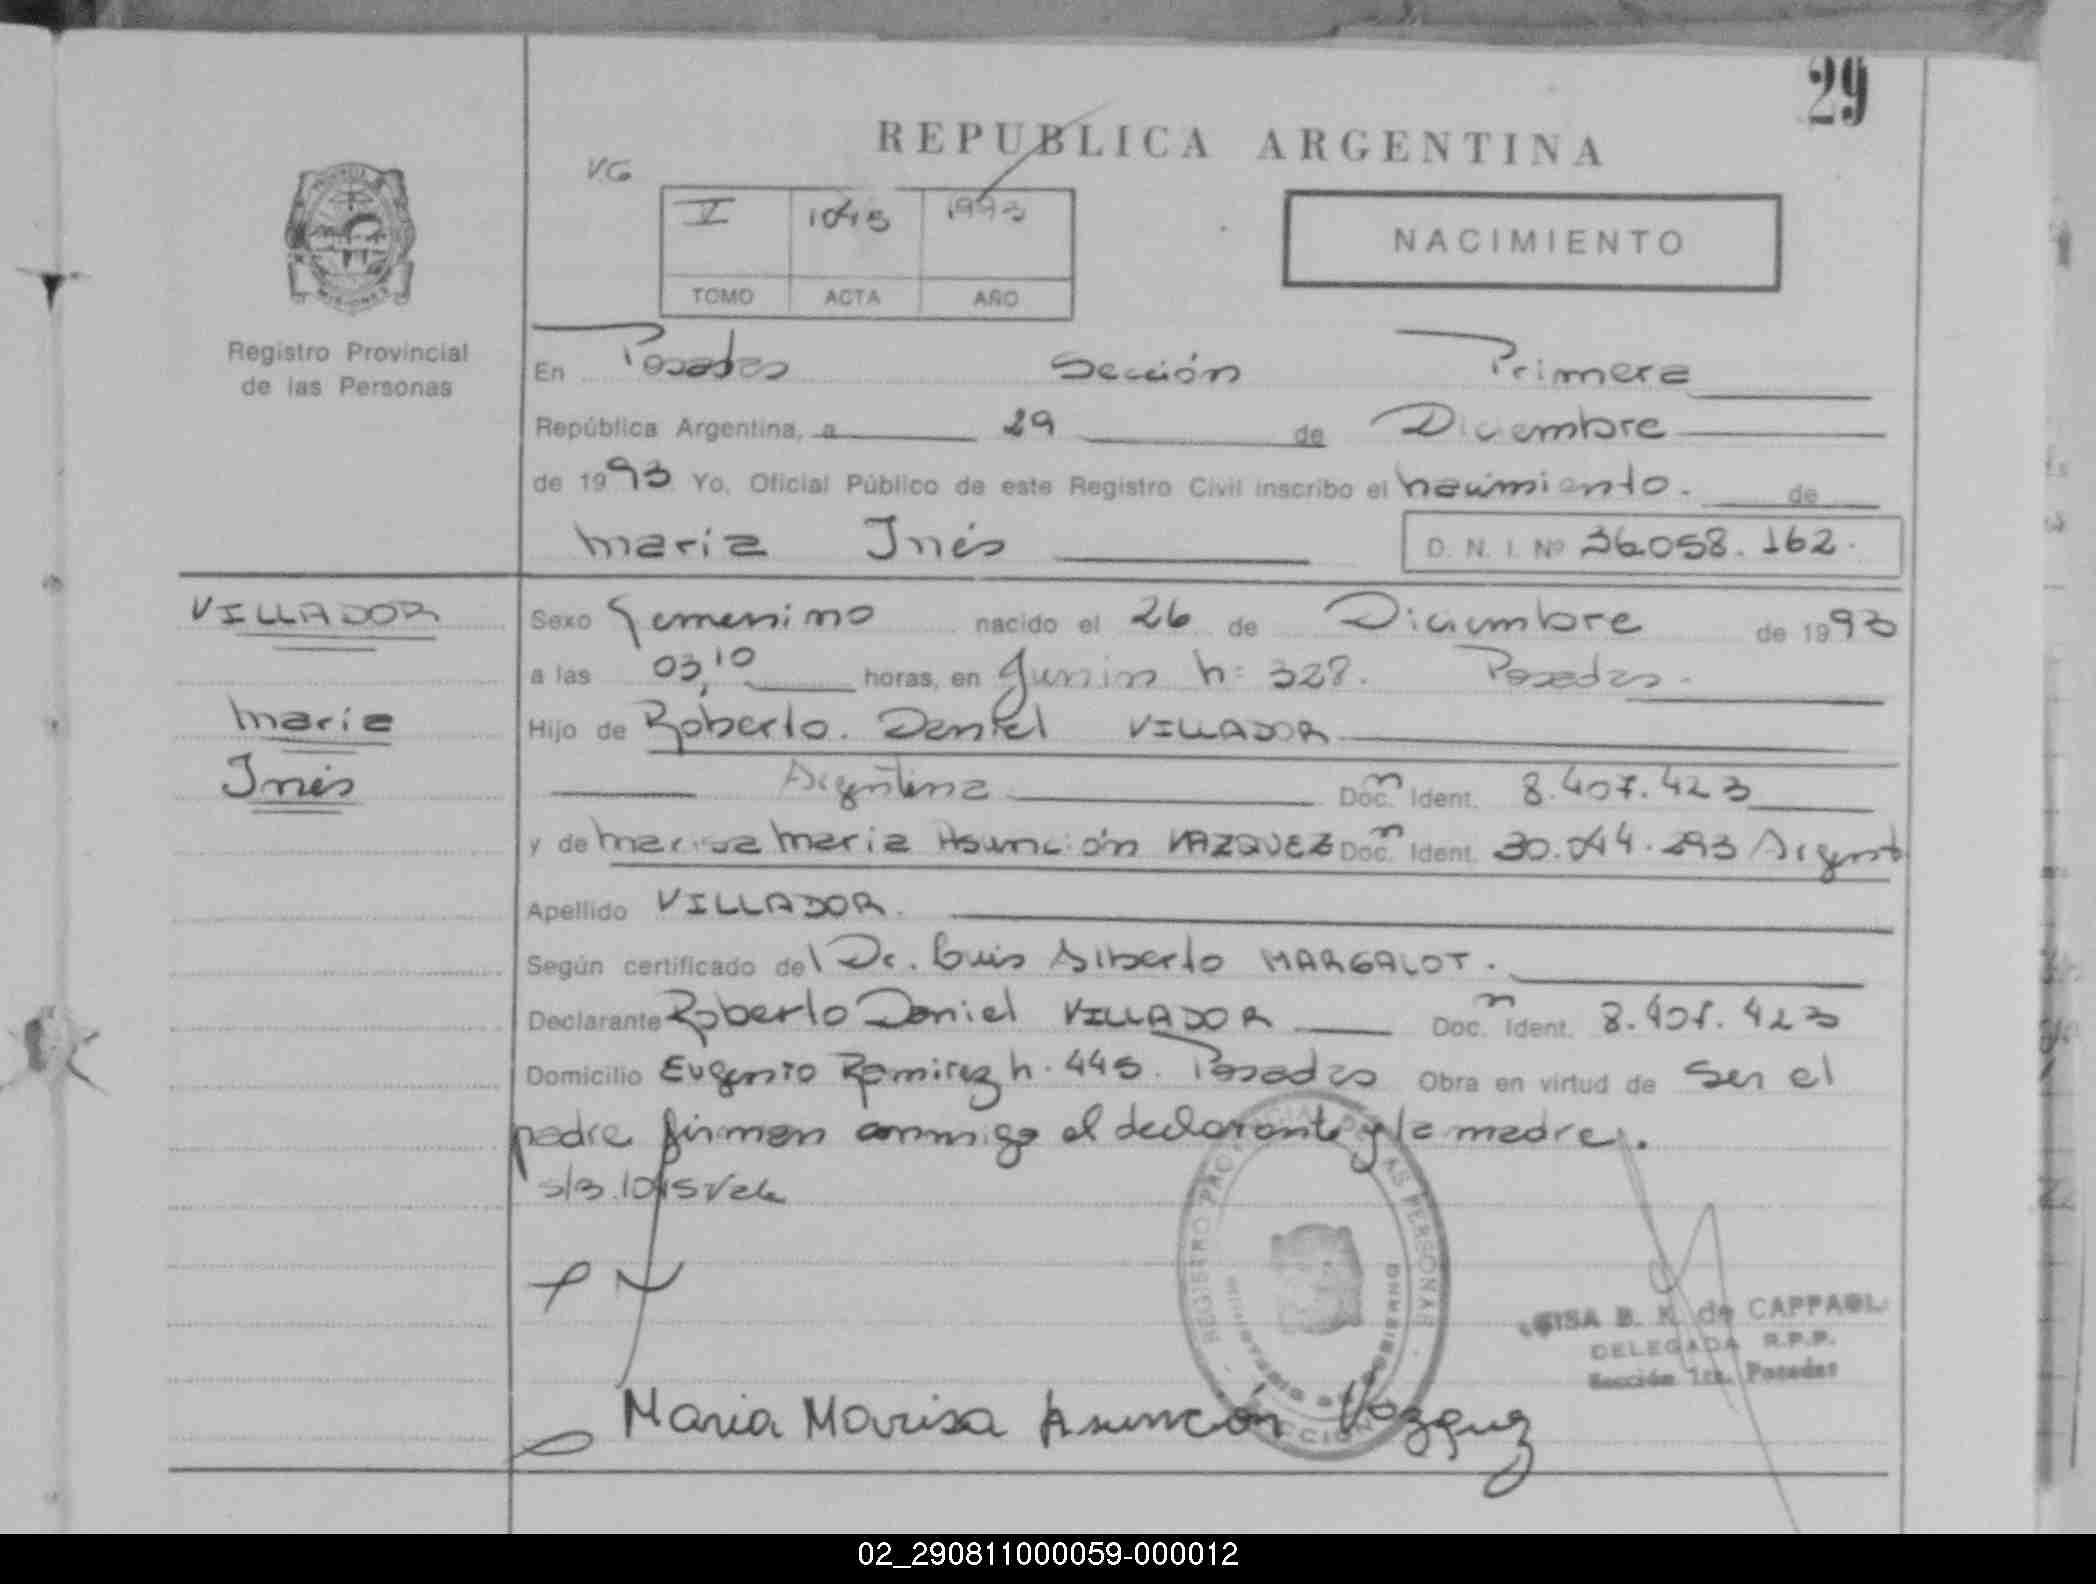 29
REPUBLICA ARGENTINA
V.G
V 1045 1993
TOMO ACTA AÑO
NACIMIENTO
Registro Provincial
de las Personas
En Posadas Sección Primera
República Argentina, a 29 de Diciembre
de 1993 Yo, Oficial Público de este Registro Civil inscribo el nacimiento. de
Maria Inés D. N. I. Nº 36058.162.
VILLADOR
Sexo Femenino nacido el 26 de Diciembre de 1993
a las 03,10 horas, en Junin n: 328. Posadas.
Maria
Hijo de Roberto. Daniel VILLADOR
Inés
Argentina Doc. n Ident. 8.407.423
y de Marisa Maria Asunción VAZQUEZ Doc. n Ident. 30.044.293 Argent
Apellido VILLADOR.
Según certificado del Dr. Luis Alberto MARGALOT.
Declarante Roberto Daniel VILLADOR Doc. n Ident. 8.407.423
Domicilio Eugenio Ramirez n. 445. Posadas Obra en virtud de Ser el
padre firman conmigo el declarante y la madre.
s/b.1045 Vale
REGISTRO PROVINCIAL DE LAS PERSONAS
B. K. de CAPPAGL
DELEGADA R.P.P.
Sección 1ra. Posadas
Maria Marisa Asunción Vazquez
02_290811000059-000012